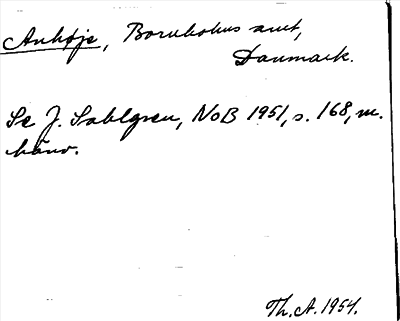 Anhøje, Bornholms amt,
Danmark.
Se J. Sahlgren, NoB 1951, s. 168, m.
hänv.
Th. A. 1954.